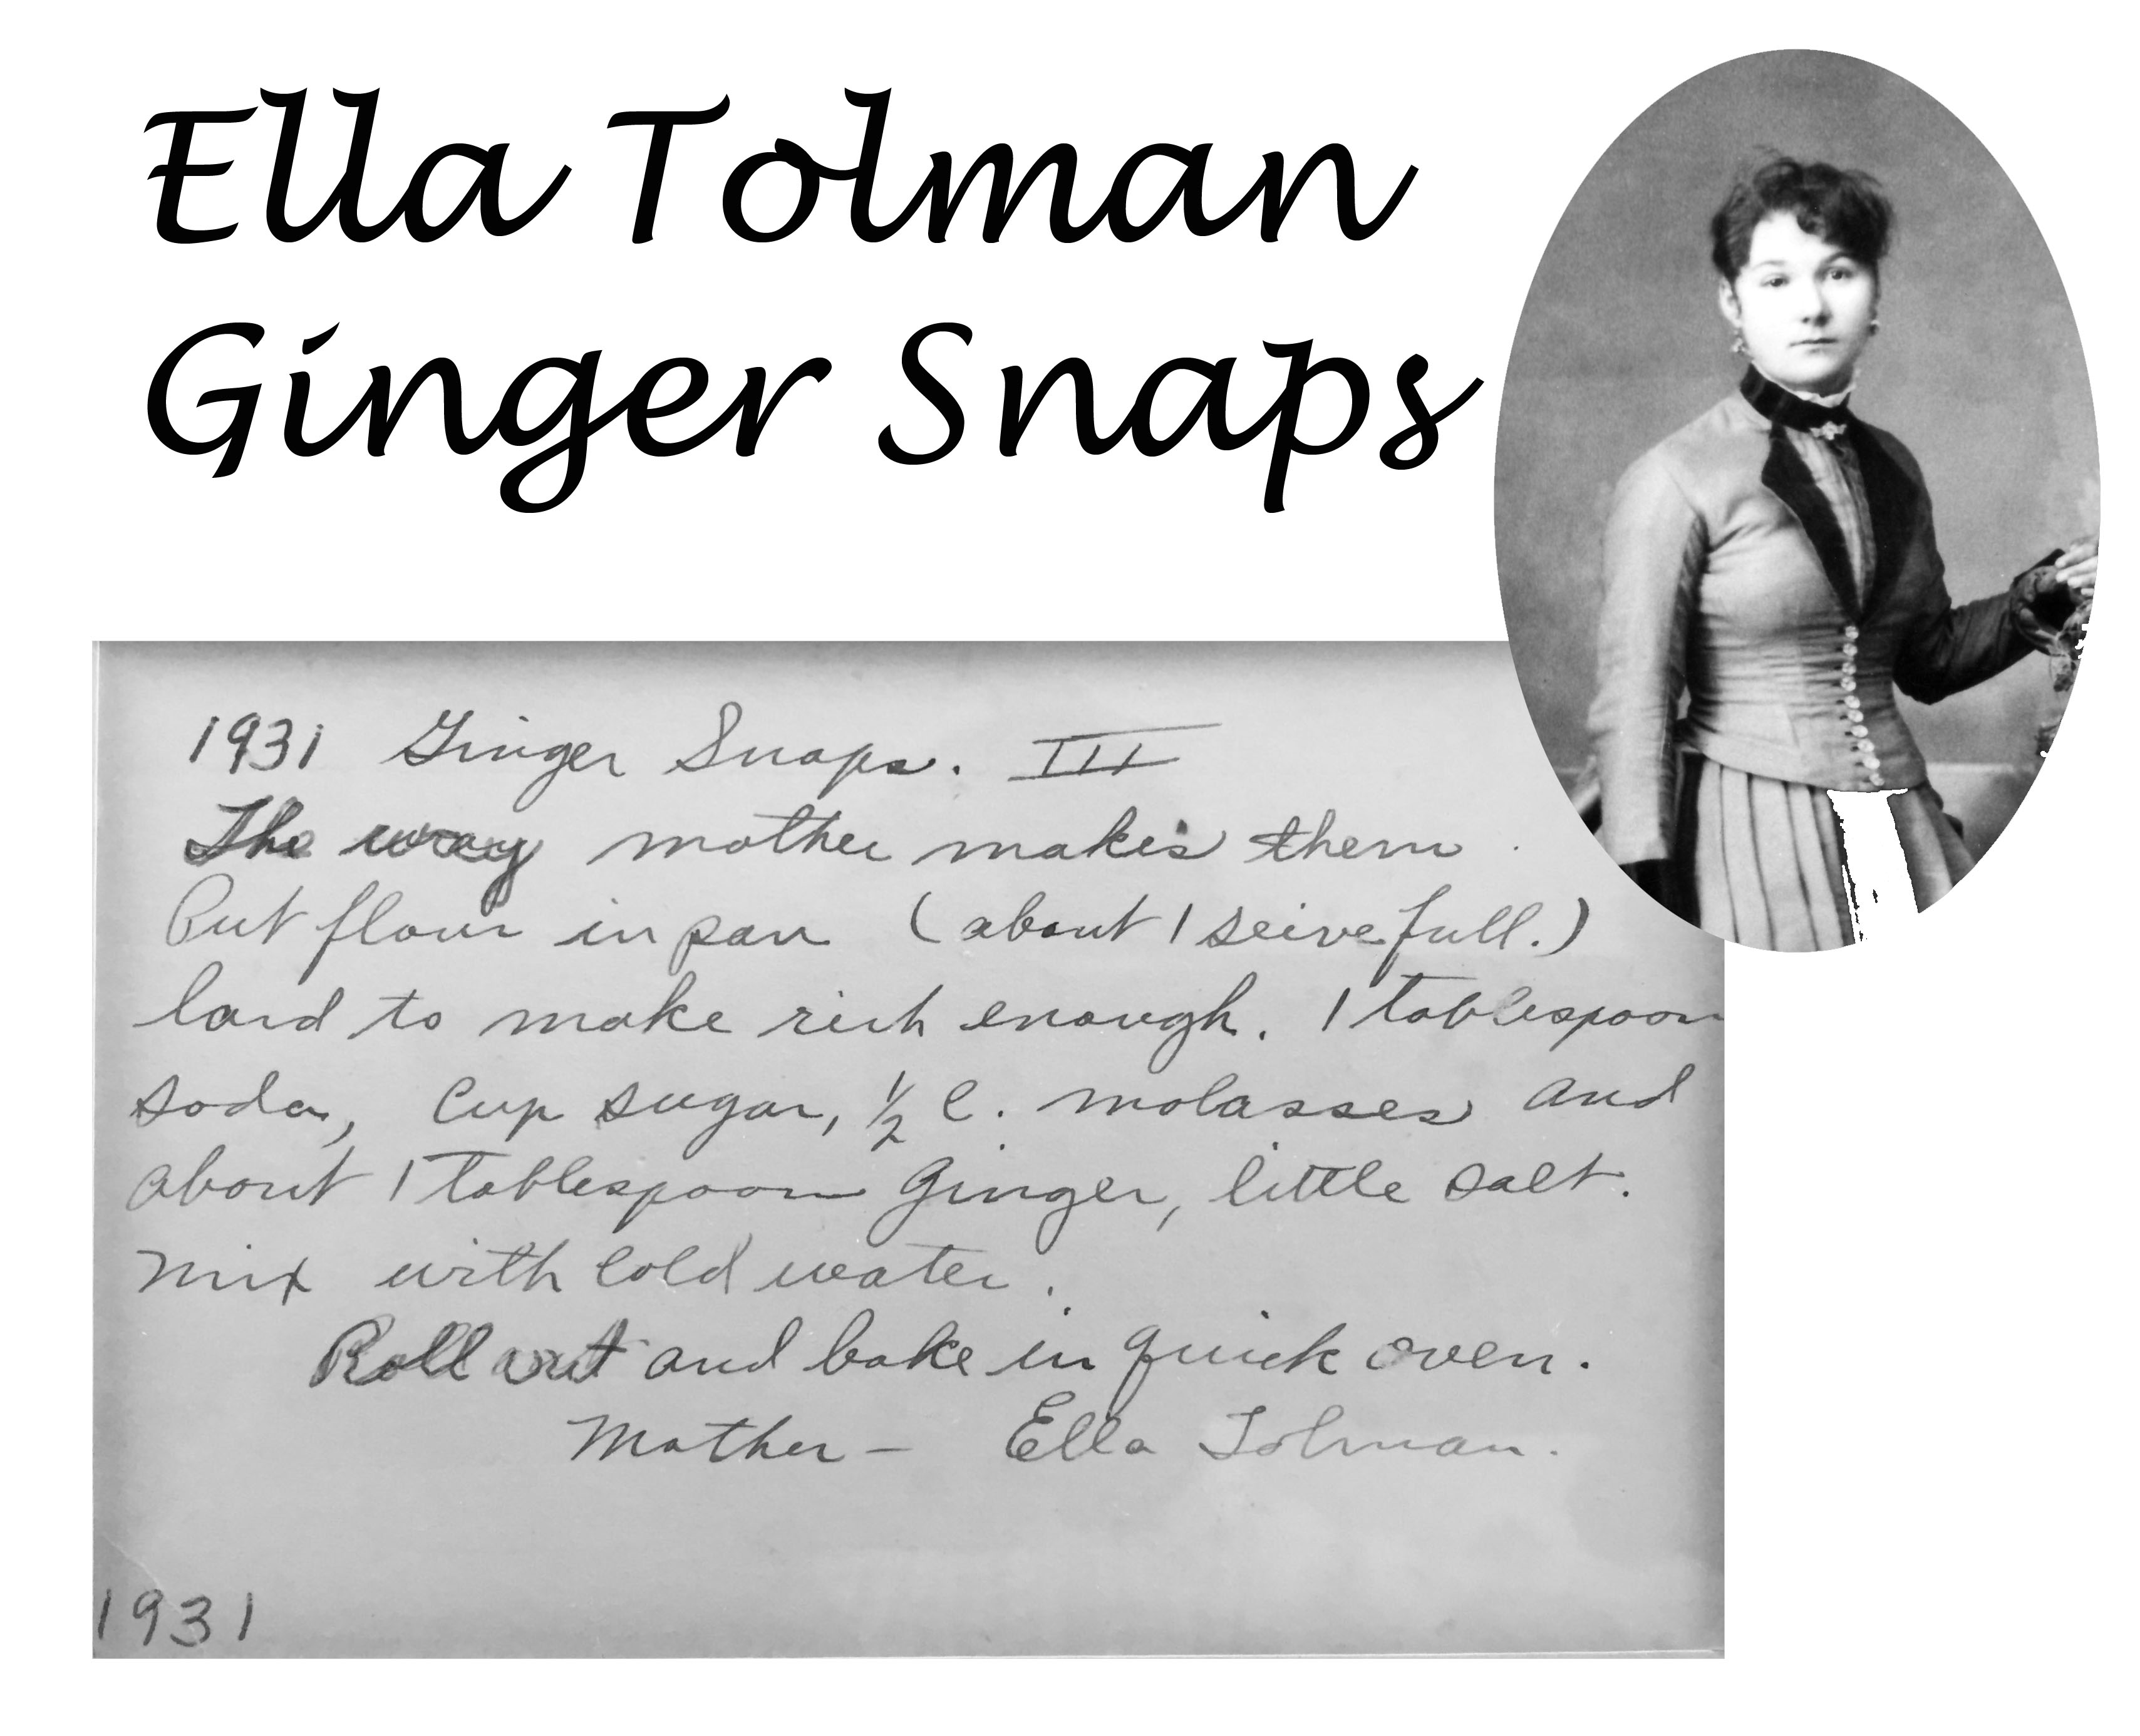 Ella Tolman
Ginger Snaps
1931 Ginger Snaps. III
The way mother makes them.
Put flour in pan (about 1 seive full.)
lard to make rich enough. 1 tablespoon
soda, Cup sugar, 1/2 C. molasses and
about 1 tablespoon Ginger, little salt.
Mix with cold water.
Roll out and bake in quick oven.
Mother - Ella Tolman.
1931